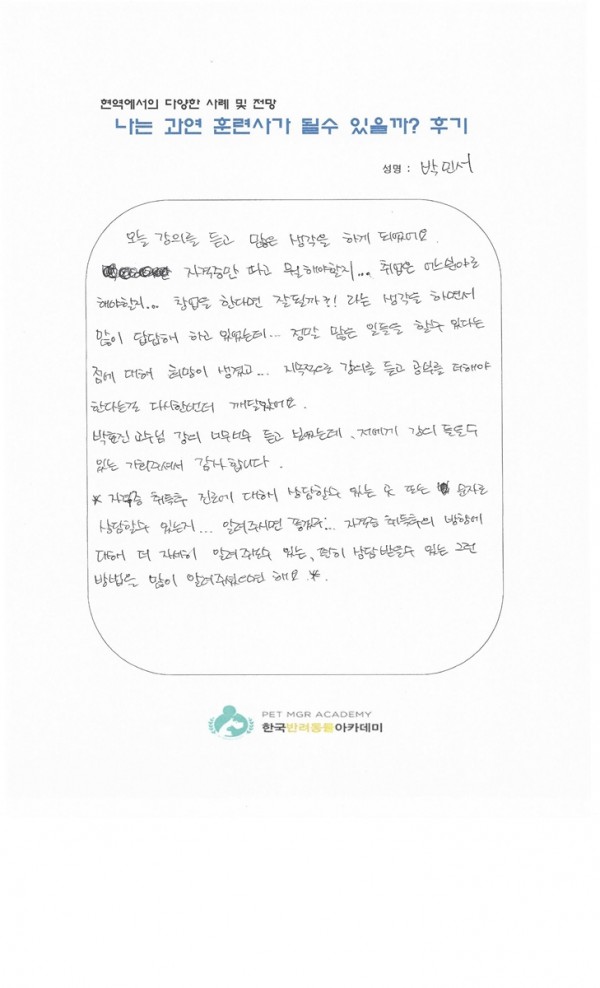 현역에서의 다양한 사례 및 전망
나는 과연 훈련사가 될수 있을까? 후기
성명 : 박민서
오늘 강의를 듣고 많은 생각을 하게 되었어요.
자격증만 따고 뭘해야할지... 취업은 어느쪽으로
해야할지... 창업을 한다면 잘될까?! 라는 생각을 하면서
많이 답답해 하고 있었는데... 정말 많은 일들을 할수 있다는
점에 대해 희망이 생겼고... 지속적으로 강의를 듣고 공부를 더해야
한다는걸 다시한번더 깨달았어요.
박현진 교수님 강의 너무너무 듣고 싶었는데, 저에게 강의 들을수
있는 기회주셔서 감사합니다.
* 자격증 취득후 진로에 대해 상담할수 있는 곳 또는 유자로
상담할수 있는지... 알려주시면 좋겠구... 자격증 취득후의 방향에
대해 더 자세히 알려주실수 있는, 편히 상담 받을수 있는 그런
방법을 많이 알려주셨으면 해요. *
PET MGR ACADEMY
한국반려동물아카데미